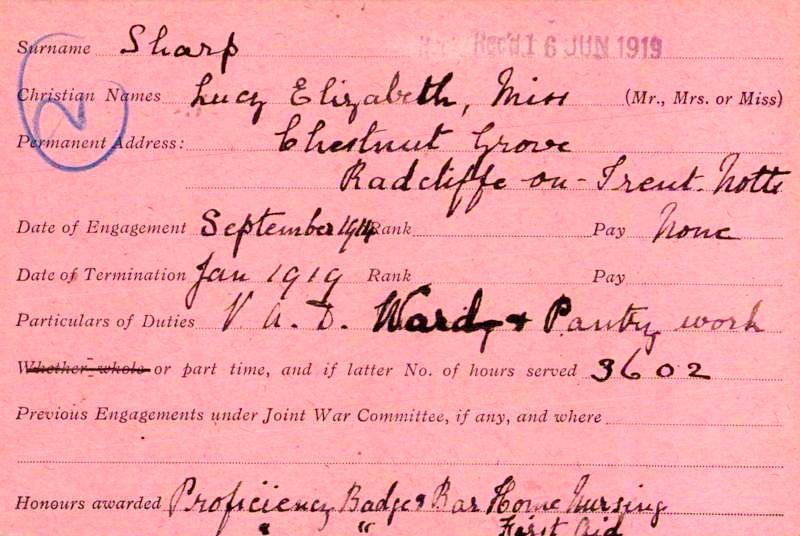 Surname Sharp Rec'd. 16 JUN 1919
2
Christian Names Lucy Elizabeth, Miss (Mr., Mrs. or Miss)
Permanent Address: Chestnut Grove
Radcliffe-on-Trent. Notts
Date of Engagement September 1914 Rank Pay None
Date of Termination Jan 1919 Rank Pay
Particulars of Duties V. A. D. Ward & Pantry work
Whether whole or part time, and if latter No. of hours served 3602
Previous Engagements under Joint War Committee, if any, and where
Honours awarded Proficiency Badge & Bar Home Nursing
" " First Aid